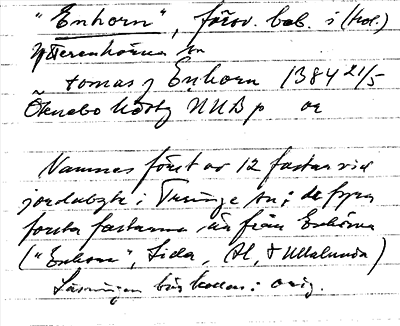 "Enhorn", försv. beb. i (hol.)
Ytterenhörna sn
tomas j Enhorn 1384 21/5
Öknebo hdsbg NHB p or
Namnes först av 12 fastar vid
jordabyte i Turinge sn; de fyra
första fastarna är från Enhörna
("Enhorn", Sida, Al, & Ullalunda)
Läsningen bör kollas: orig.